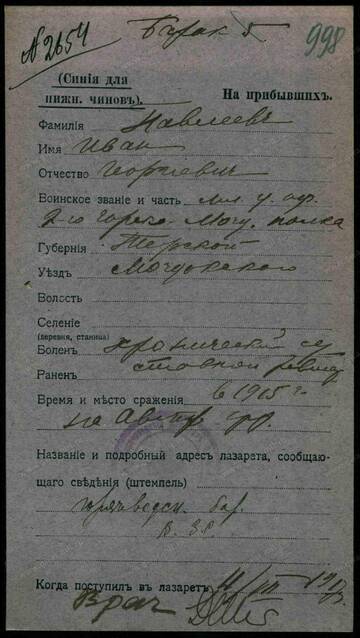 № 2654
Бурак 5
998
(Синія для
нижн. чиновъ).
На прибывшихъ.
Фамилія Павлеевъ
Имя Иван
Отчество Георгиевич
Воинское званіе и часть мл. у. оф.
2-го Горско- Мозд. полка
Губернія Терской
Уѣздъ Моздокскаго
Волость
Селеніе
(деревня, станица)
Боленъ хронический су
Раненъ ставной ревм
Время и мѣсто сраженія в 1915 г.
на Австр. фр.
Названіе и подробный адресъ лазарета, сообщаю-
щаго свѣдѣнія (штемпель)
Горячеводск. бар.
Когда поступилъ въ лазаретъ 4/VII 1917
Врач